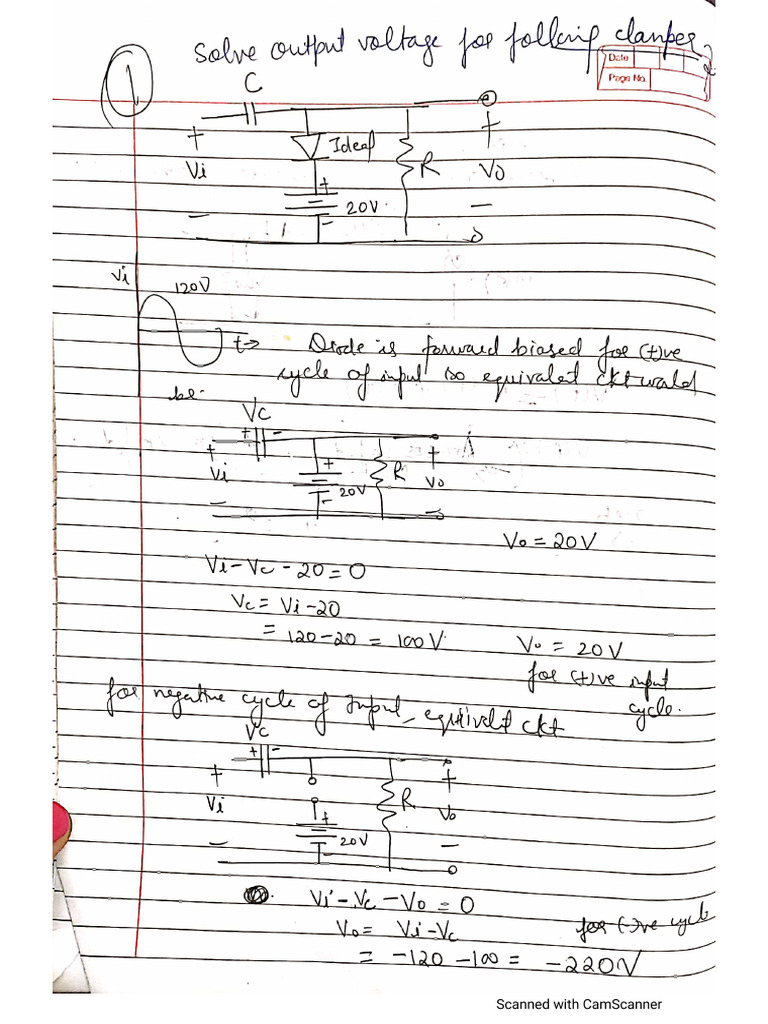 Solve output voltage for follcing clamper
Date
Page No.
1
C
+
Vi
-
Ideal
+
20V
-
R
+
Vo
-
Vi
120V
t→
Diode is forward biased for (+)ve
cycle of input so equivalet ckt wold
be-
Vc
+ -
+
Vi
-
+
20V
-
R
+
Vo
-
Vo = 20V
Vi - Vc - 20 = 0
Vc = Vi - 20
= 120 - 20 = 100V.
Vo = 20V
for (+)ve input
cycle.
for negative cycle of Input, equivalet ckt
Vc
+ -
+
Vi
-
+
20V
-
R
+
Vo
-
Vi - Vc - Vo = 0
Vo = Vi - Vc
for (-)ve cycle
= -120 - 100 = -220V
Scanned with CamScanner